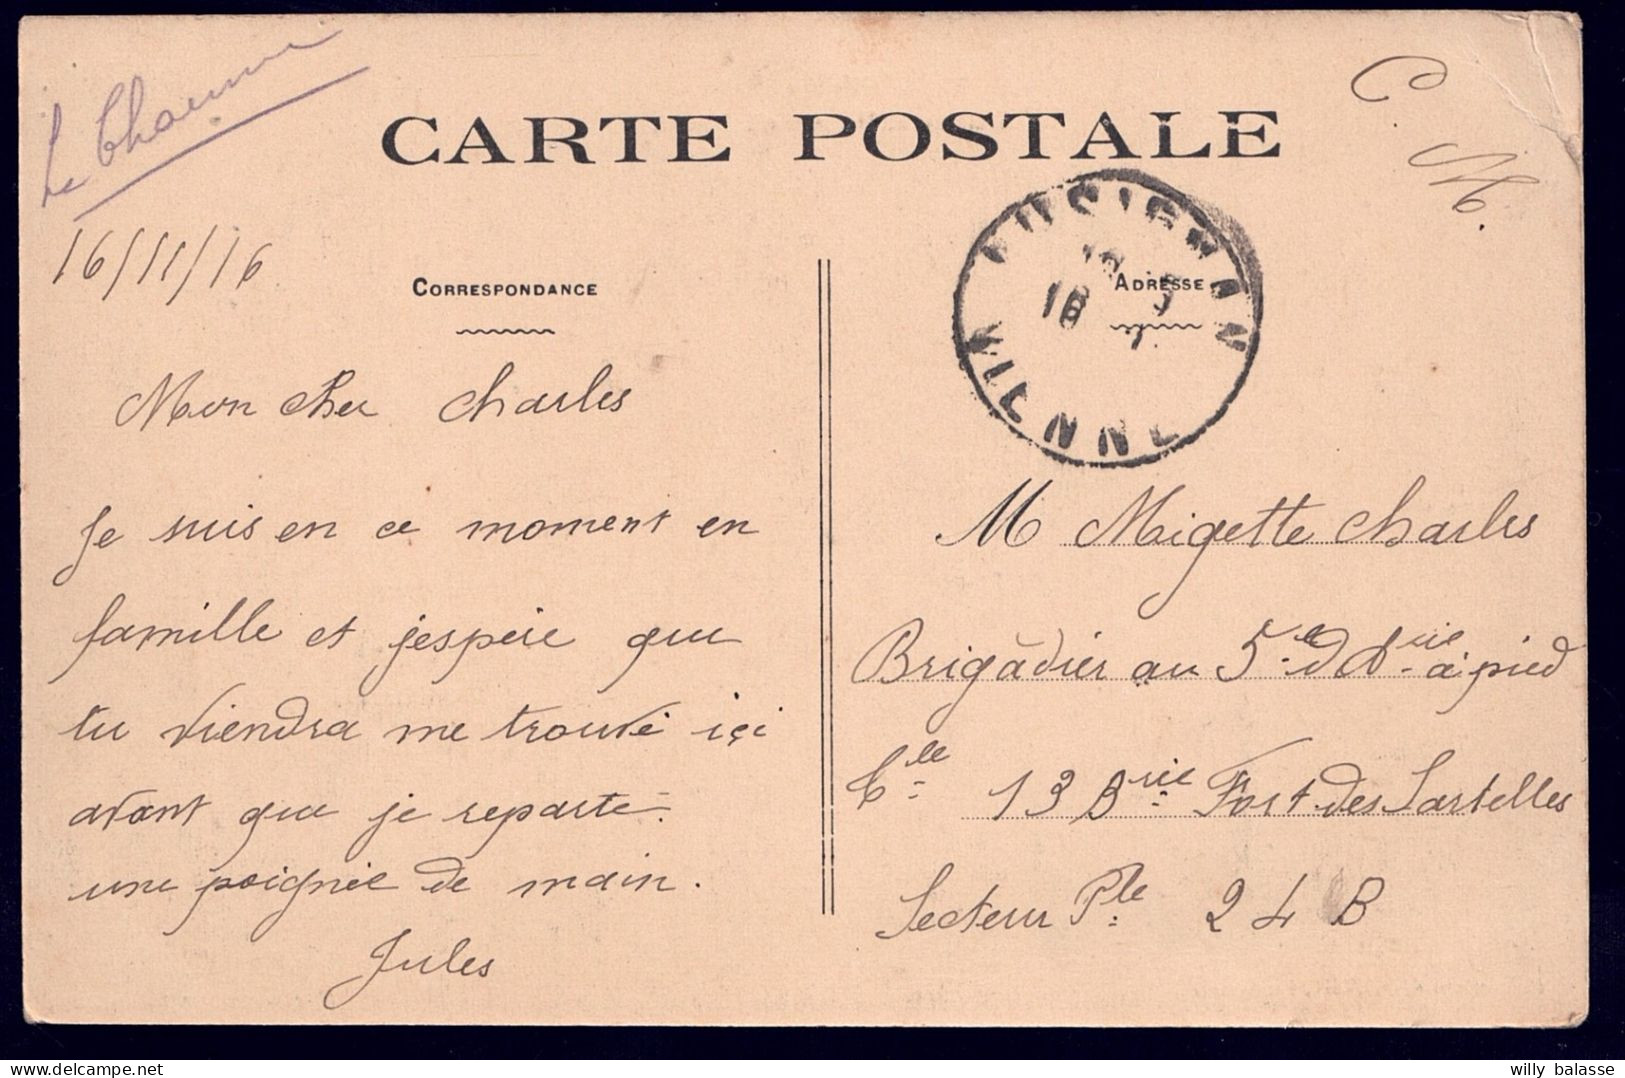 Le Chaume
CARTE POSTALE
C M.
16/11/16
CORRESPONDANCE
ADRESSE
LUSIGNAN
VIENNE
16
Mon cher Charles
Je suis en ce moment en
famille et j'espère que
tu viendra me trouvé içi
avant que je reparte.
une poignée de main.
Jules
M Migette Charles
Brigadier au 5e d'Arie à pied
Cle 13 Brie Fort des Sartelles
Secteur Ple 24 B
willy balasse